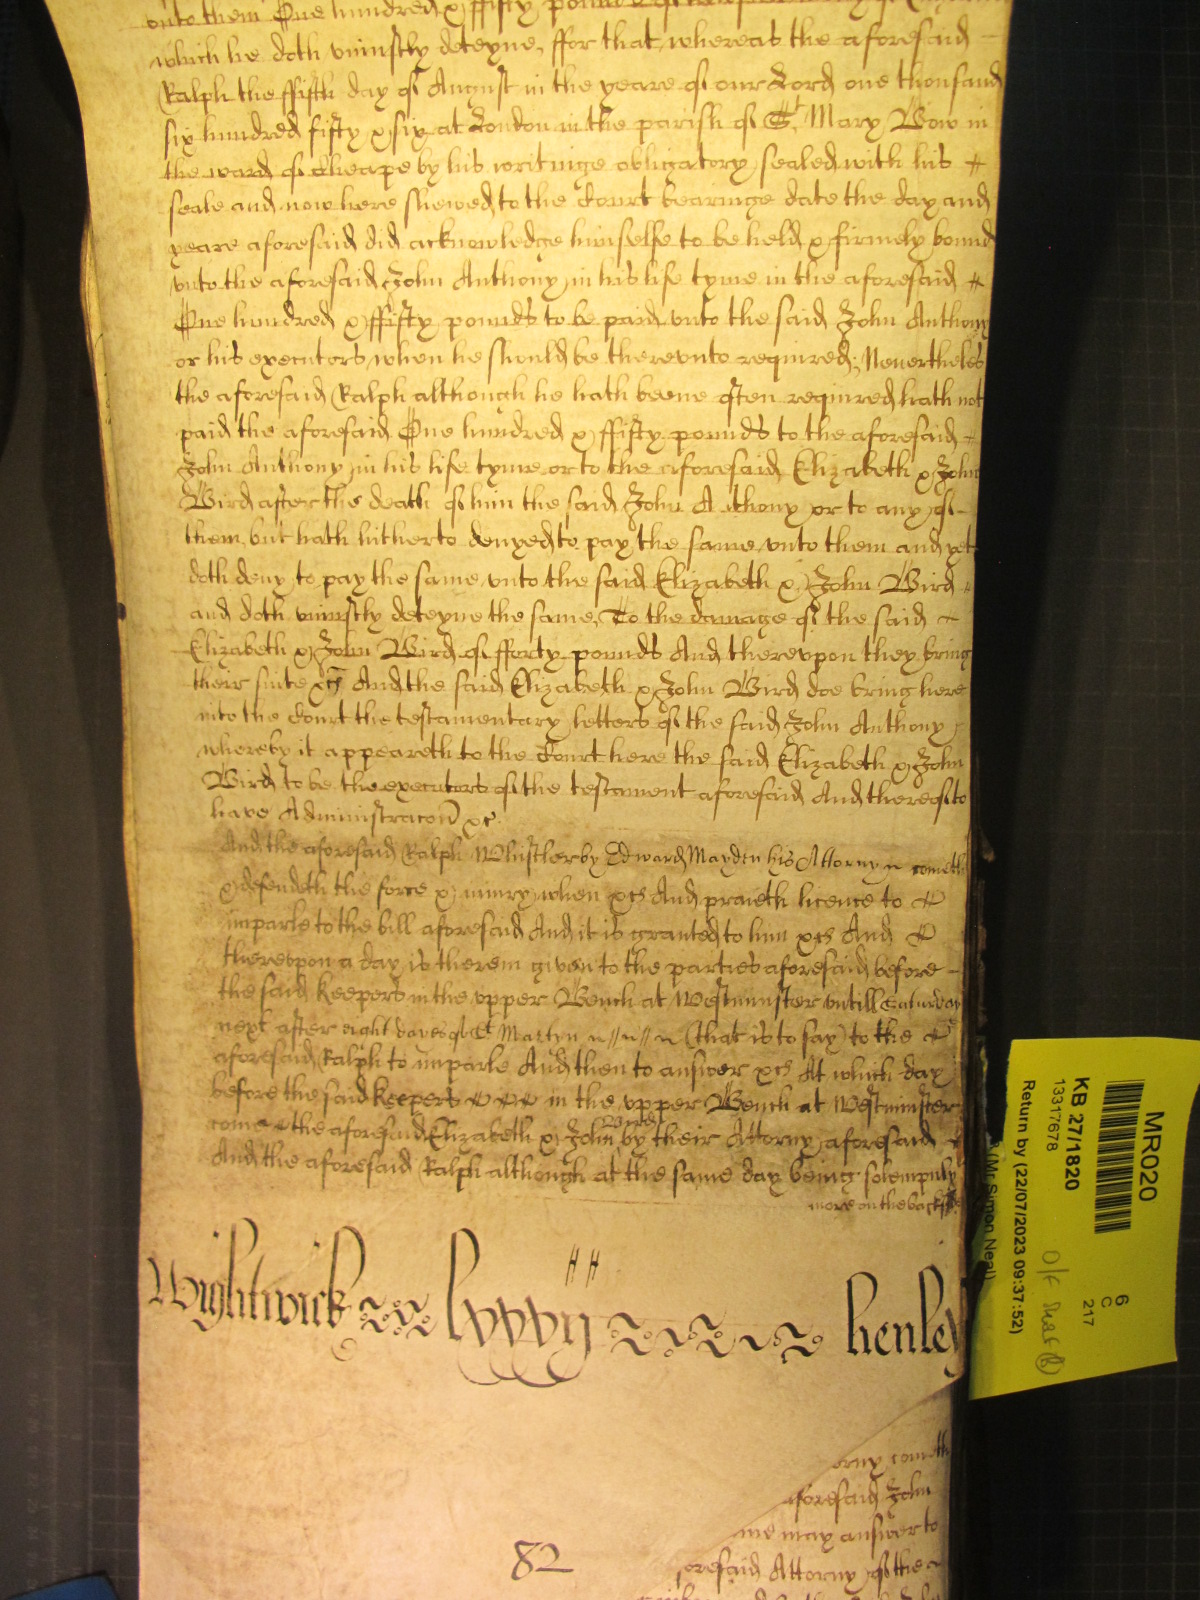 unto them One hundred & ffifty pounds
which he doth uniustly deteyne, ffor that, whereas the aforesaid
Ralph the ffifth day of August in the yeare of our Lord one thousand
six hundred fifty & six at London in the parish of St Mary Bow in
the ward of Cheape by his writinge obligatory sealed with his
seale and now here shewed to the Court bearinge date the day and
yeare aforesaid did acknowledge himselfe to be held & firmely bound
unto the aforesaid John Anthony in his life tyme in the aforesaid
One hundred & ffifty pounds to be paid unto the said John Anthony
or his executors when he should be thereunto required; Nevertheles
the aforesaid Ralph although he hath beene often required hath not
paid the aforesaid One hundred & ffifty pounds to the aforesaid
John Anthony in his life tyme or to the aforesaid Elizabeth & John
Bird after the death of him the said John Anthony or to any of
them, but hath hitherto denyed to pay the same unto them and yet
doth deny to pay the same unto the said Elizabeth & John Bird
and doth uniustly deteyne the same, To the damage of the said
Elizabeth & John Bird of fforty pounds And thereupon they bring
their suite &c And the said Elizabeth & John Bird doe bring here
into the Court the testamentary letters of the said John Anthony
whereby it appeareth to the Court here the said Elizabeth & John
Bird to be the executors of the testament aforesaid And thereof to
have Administracon &c.
And the aforesaid Ralph Whistler by Edward Mayden his Attorny cometh
& defendeth the force & iniury when &c And praieth licence to
imparle to the bill aforesaid And it is granted to him &c And
thereupon a day is therein given to the parties aforesaid before
the said Keepers in the upper Bench at Westminster untill Saturday
next after eight dayes of St Martyn (that is to say) to the
aforesaid Ralph to imparle And then to answer &c At which day
before the said Keepers in the upper Bench at Westminster
come the aforesaid Elizabeth & John Bird by their Attorny aforesaid
And the aforesaid Ralph although at the same day being solempnly
more on the backside
Wightwick lxxxij henley
orny cometh
aforesaid John
ime may answer to
oresaid Attorny of the
82
MR020
KB 27/1820
13317678
6
C
217
Return by (22/07/2023 09:37:52)
(Mr Simon Neal)